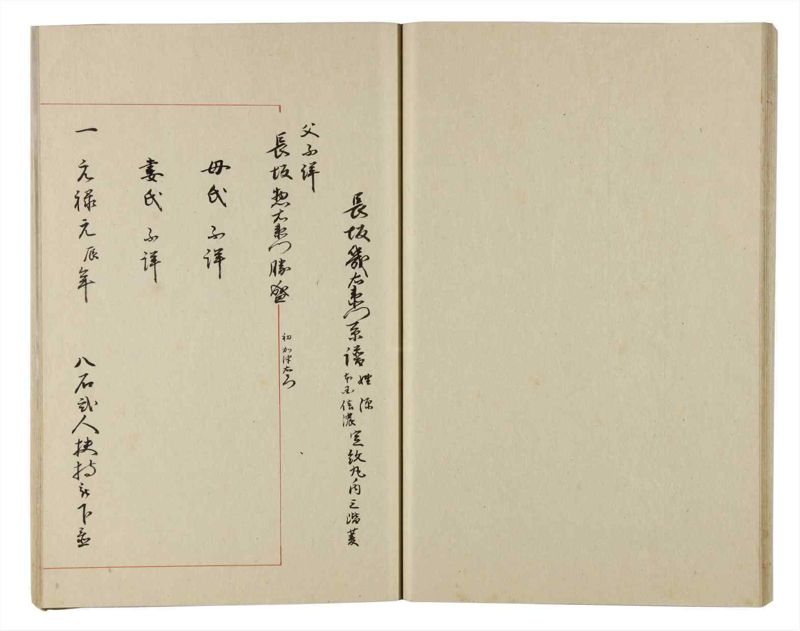 長坂幾右衛門系譜 姓源 本国信濃 定紋丸ノ内三階菱
父不詳
長坂惣右衛門勝盛
初加津右衛門
母氏不詳
妻氏不詳
一元禄元辰年 八石弐人扶持被下置